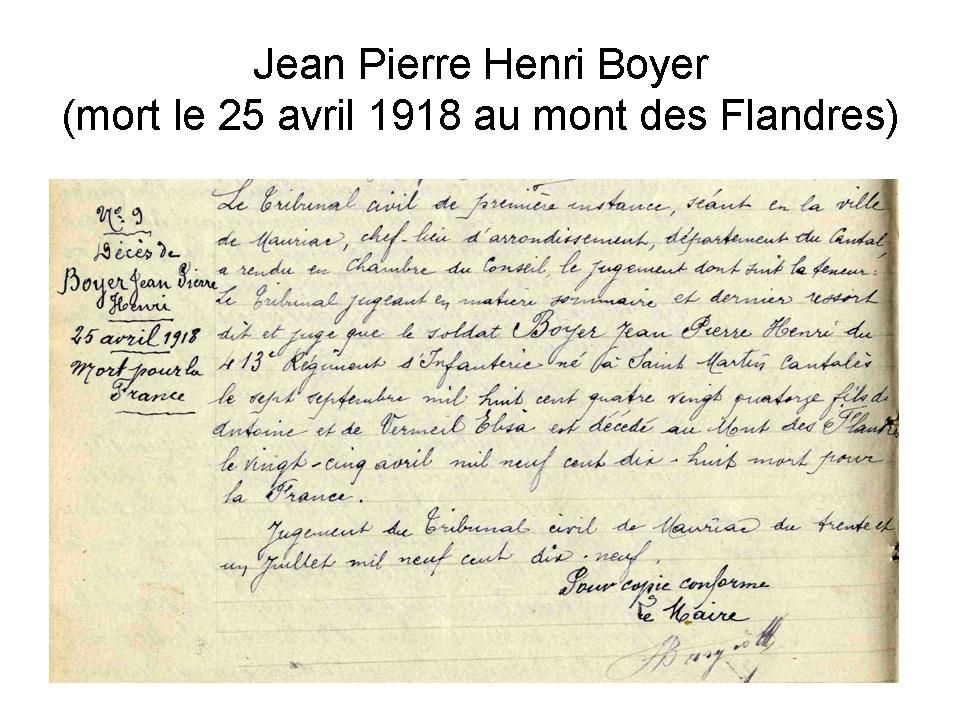 Jean Pierre Henri Boyer
(mort le 25 avril 1918 au mont des Flandres)
N° 9
Décès de
Boyer Jean Pierre
Henri
25 avril 1918
Mort pour la
France
Le Tribunal civil de première instance, séant en la ville
de Mauriac, chef-lieu d'arrondissement, département du Cantal,
a rendu en Chambre du Conseil, le jugement dont suit la teneur:
Le Tribunal jugeant en matière sommaire et dernier ressort
dit et juge que le soldat Boyer Jean Pierre Henri du
413e Régiment d'Infanterie né à Saint Martin Cantalès
le sept septembre mil huit cent quatre vingt quatorze fils de
Antoine et de Vermeil Elisa est décédé au Mont des Flandres
le vingt-cinq avril mil neuf cent dix-huit mort pour
la France.
Jugement du Tribunal civil de Mauriac du trente et
un Juillet mil neuf cent dix-neuf.
Pour copie conforme
Le Maire